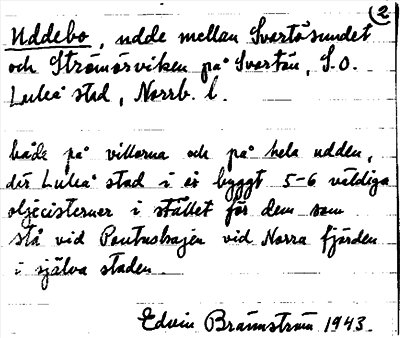 (2)
Uddebo, udde mellan Svartösundet
och Strömörviken på Svartön, S.O.
Luleå stad, Norrb. l.
både på villorna och på hela udden,
där Luleå stad i år byggt 5-6 väldiga
oljecisterner i stället för dem som
stå vid Pontuskajen vid Norra fjärden
i själva staden.
Edvin Brännström 1943.